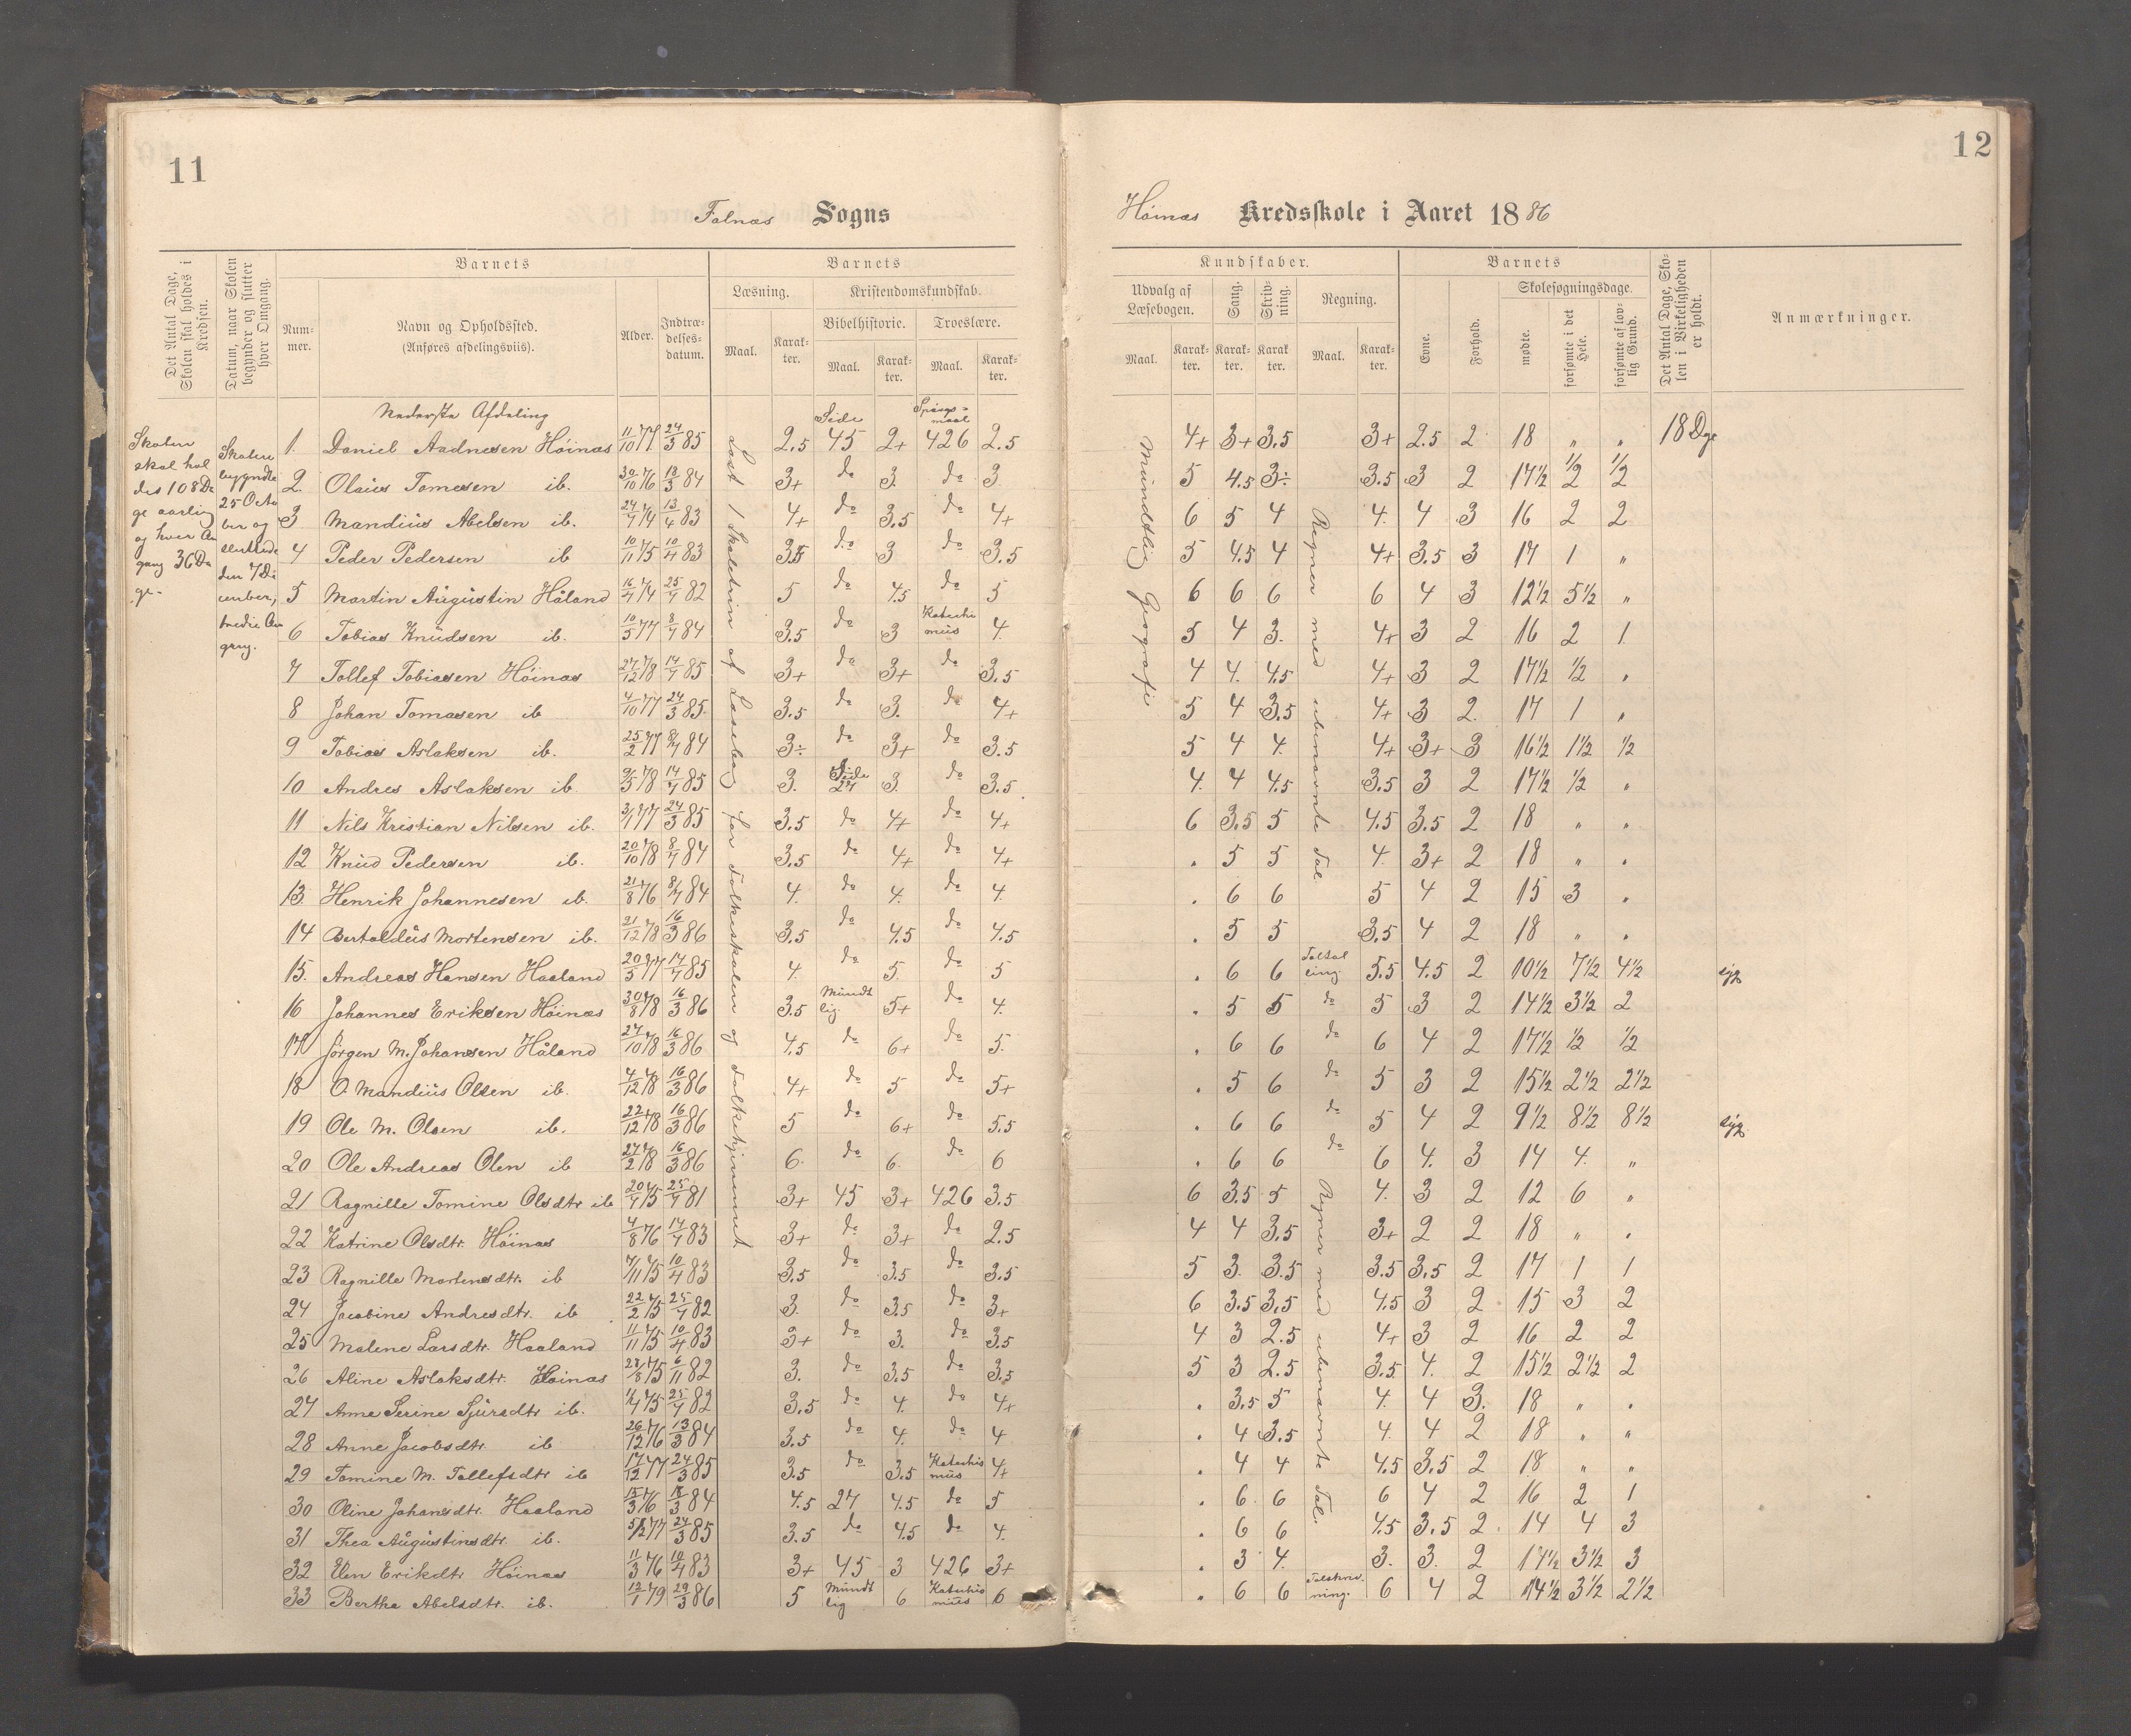 11
Falnæs Sogns
Det Antal Dage, Skolen skal holdes i Kredsen.
Datum, naar Skolen begynder og slutter hver Omgang.
Barnets
Barnets
Num-mer.
Navn og Opholdssted.
(Anføres afdelingsviis).
Alder.
Indtræ-delses-datum.
Læsning.
Kristendomskundskab.
Bibelhistorie.
Troeslære.
Maal.
Karak-ter.
Maal.
Karak-ter.
Maal.
Karak-ter.
Nederste Afdeling
Side
Spørgs-maal
Skolen
skal hol
des 108 Da
ge aarlig
og hver Om
gang 36 Da
ge.
Skolen
begyndte
25 Octo
ber og
sluttede
den 7 De
cember,
tredie Om
gang.
Læst 1 Skoletrin af Læsebog for Folkeskolen og Folkehjemmet
1. Daniel Aadnesen Höinæs 11/10 77 24/3 85 2.5 45 2+ 426 2.5
2. Olaus Tomesen ib. 30/10 76 18/3 84 3+ do 3. do 3.
3 Mandius Abelsen ib. 24/7 74 13/4 83 4+ do 3.5 do 4+
4 Peder Pedersen ib 10/11 75 10/4 83 3.5 do 3 do 3.5
5 Martin Augustin Håland 16/7 74 25/7 82 5 do 4.5 do 5
6 Tobias Knudsen ib. 10/5 77 8/7 84 3.5 do 3 Katechismus 4.
7 Tollef Tobiasen Höinæs 27/12 78 14/7 85 3+ do 3+ do 3.5
8 Johan Tomasen ib 4/10 77 24/3 85. 3.5 do 3. do 4+
9 Tobias Aslaksen ib. 25/2 77 8/7 84 3÷ do 3+ do 3.5
10 Andres Aslaksen ib. 9/5 78 14/7 85 3. Side 27 3. do 3.5.
11 Nils Kristian Nilsen ib. 3/1 77 24/3 85 3.5 do 4+ do 4+
12 Knud Pedersen ib. 20/10 78 8/7 84 3.5 do 4+ do 4+
13. Henrik Johannesen ib. 21/8 76 8/7 84 4. do 4. do 4.
14 Bertoldus Mortensen ib. 21/12 78 16/3 86 3.5 do 4.5 do 4.5
15. Andreas Hansen Haaland 20/5 77 14/7 85 4. do 5. do 5
16 Johannes Eriksen Höinæs 30/8 78 16/3 86 3.5 Mundtlig. 5+ do 4.
17 Jörgen M. Johansen Håland 27/10 78 16/3 86 4.5 do 6+ do 5.
18 O. Mandius Olsen ib. 4/12 78 16/3 86 4+ do 5 do 5+
19 Ole M. Olsen ib. 22/12 78 16/3 86 5 do 6+ do 5.5
20 Ole Andreas Olen ib 27/2 78 16/3 86 6. do 6. do 6
21 Ragnille Tomine Olsdtr ib 20/7 75 25/7 81 3+ 45 3+ 426 3.5
22 Katrine Olsdtr. Höinæs 4/8 76 14/7 83 3+ do 3+ do 2.5
23 Ragnille Mortensdtr. ib 7/11 75 10/4 83 3.5 do 3.5 do 3.5
24 Jacobine Andresdtr. ib 22/2 75 25/7 82 3. do 3.5 do 3+
25 Malene Larsdtr. Haaland 11/11 75 10/4 83 3+ do 3. do 3.5
26 Aline Aslaksdtr. Höinæs 28/8 75 6/11 82 3. do 3.5 do 3.5
27 Anne Serine Sjursdtr ib. 75 25/7 82 3.5 do 4. do 4+
28 Anne Jacobsdtr. ib 26/12 76 13/3 84 3.5 do 4. do 4
29 Tomine M. Tollefsdtr ib 17/12 77 24/3 85 3.5 do 3.5 Katechismus 4+
30 Oline Johansdtr. Haaland 15/3 76 18/3 84 4.5 27 4.5 do 5
31 Thea Augustinsdtr. ib. 5/12 77 24/3 85 3.5 do 4.5 do 4.
32 Elen Eriksdtr Höinæs 11/3 76 10/4 83 3+ 45 3 426 3+
33 Bertha Abelsdtr. ib. 12/1 79 29/3 86 5 Mundtlig 6 Katechismus 6
12
Höinæs Kredsskole i Aaret 1886
Kundskaber.
Barnets
Udvalg af Læsebogen.
Sang.
Skrivning.
Regning.
Evne.
Forhold.
Skolesøgningsdage.
Det Antal Dage, Skolen i Virkeligheden er holdt.
Anmærkninger.
Maal.
Karak-ter.
Karak-ter.
Karak ter.
Maal.
Karak-ter.
mødte.
forsømte i det Hele.
forsømte af lovlig Grund.
Mundtlig Geografi
Regner med ubenævnte Tal.
4+ 3+ 3.5 3+ 2.5 2 18 " " 18 Dge
5 4.5 3÷ 3.5 3 2 17½ ½ ½
6 5 4 4. 4 3 16 2 2
5 4.5 4 4+ 3.5 3 17 1 "
6 6 6 6 4 3 12½ 5½ "
5 4 3. 4+ 3 2 16 2 1
4 4. 4.5 4+ 3 2 17½ ½ "
5 4 3.5 4+ 3 2. 17 1 "
5 4 4. 4+ 3+ 3 16½ 1½ ½
4. 4 4.5 3.5 3 2 17½ ½ "
6 3.5 5 4.5 3.5 2 18 " "
" 5 5 4. 3+ 2 18 " "
" 6 6 5 4 2 15 3 "
" 5 5 3.5 4 2 18 " "
" 6 6 5.5 4.5 2 10½ 7½ 4½ syg
" 5 5 do 5 3 2 14½ 3½ 2
" 6 6 do 6 4 2 17½ ½ ½
" 5 6 do 5 3 2 15½ 2½ 2½
" 6 6 do 5 4 2 9½ 8½ 8½ syg.
" 6 6 do 6 4. 3 14 4. "
Regner med ubenævnte Tal.
6 3.5 5 4. 3 2 12 6 "
4 4 3.5 3+ 2 2 18 " "
5 3. 3.5 3.5 3.5 2 17 1 1
6 3.5 3.5 4.5 3 2 15 3 2
4 3 2.5 4+ 3 2 16 2 2
5 3 2.5 3.5 4. 2 15½ 2½ 2
" 3.5 5 4. 4 3. 18 " "
" 4 3.5 4. 4 2 18 " "
" 4 4 4.5 3.5 2 18 " "
" 6 6 6 4 2 16 2 1
" 6 6 4.5 3.5 2. 14 4 3
" 3 4. 3. 3. 2 17½ 3½ 3
" 6 6 Talskrivning. 6 4 2 14½ 3½ 2½